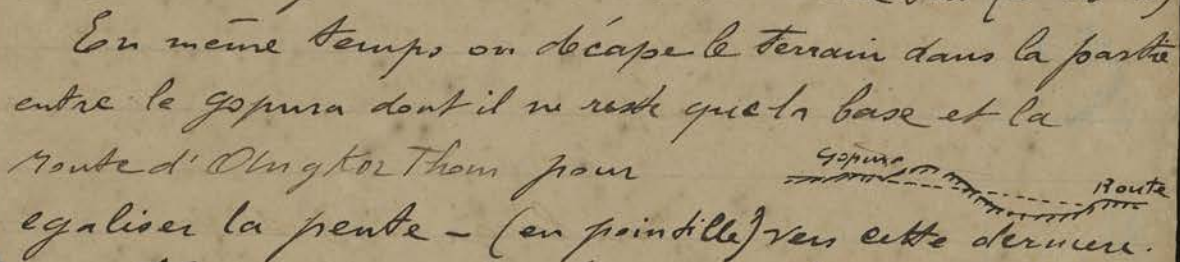 En même temps on décape le terrain dans la partie
entre le gopura dont il ne reste que la base et la
route d'Angkor Thom pour
Gopura
Route
egaliser la pente - (en pointillé) vers cette derniere.